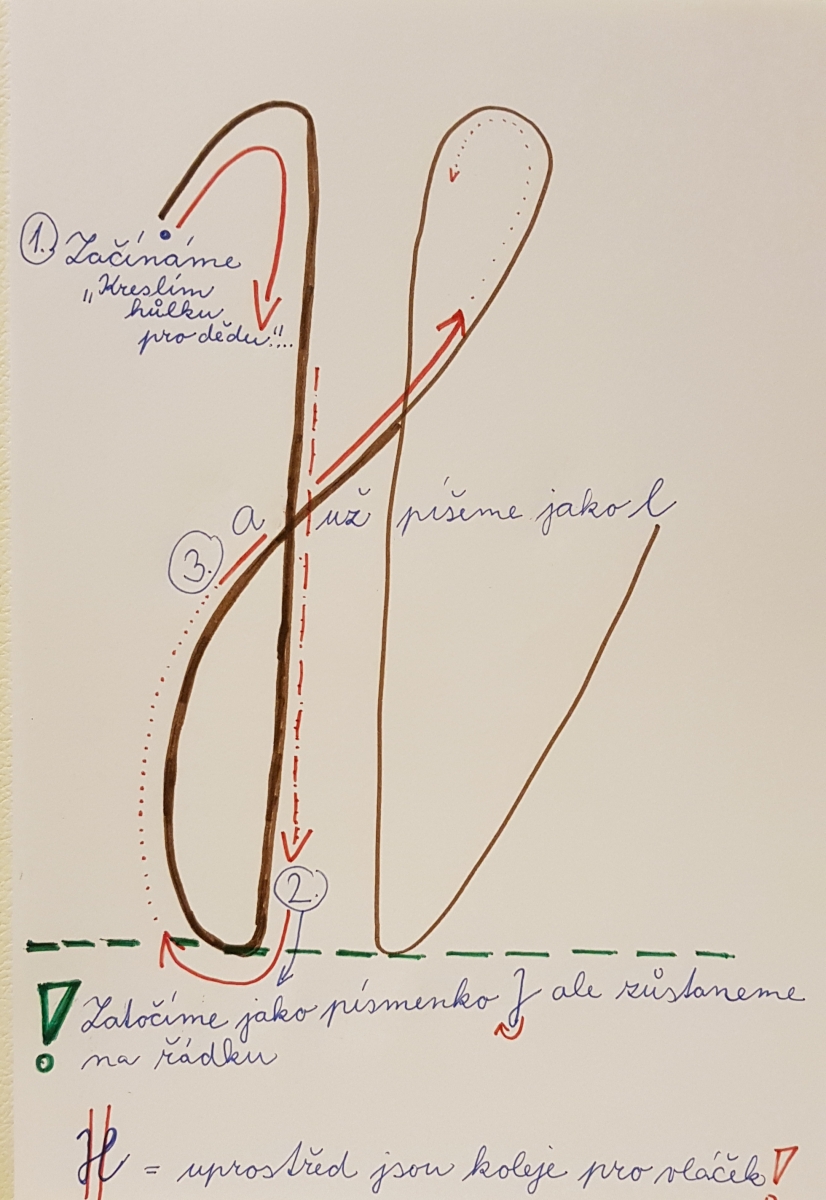 1. Začínáme
„Kreslím
hůlku
pro dědu"...
3. a už píšeme jako l
2.
! Zatočíme jako písmenko J ale zůstaneme
na řádku
H = uprostřed jsou koleje pro vláček!